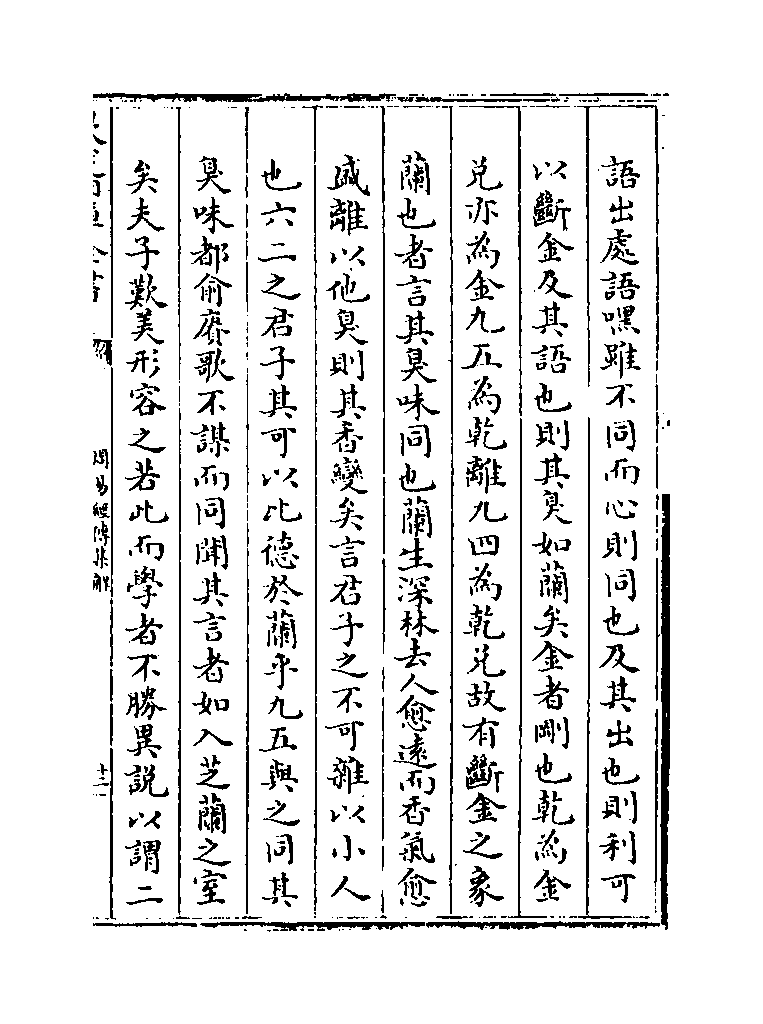 語出處語嘿雖不同而心則同也及其出也則利可
以斷金及其語也則其臭如蘭矣金者剛也乾為金
兌亦為金九五為乾離九四為乾兌故有斷金之象
蘭也者言其臭味同也蘭生深林去人愈遠而香氣愈
盛離以他臭則其香變矣言君子之不可雜以小人
也六二之君子其可以比德於蘭乎九五與之同其
臭味都俞賡歌不謀而同聞其言者如入芝蘭之室
矣夫子歎美形容之若此而學者不勝異説以謂二
周易經傳集解